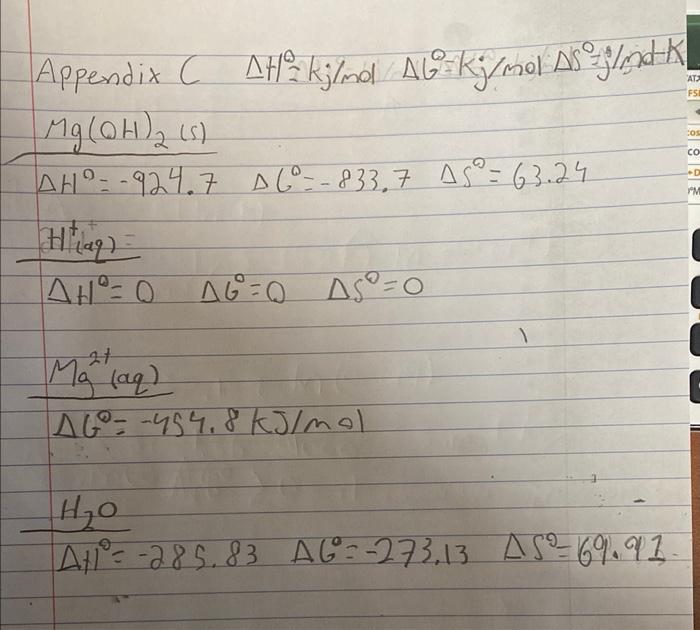 Appendix C ΔH°=kj/mol ΔG°=kj/mol ΔS°=j/mol·K
Mg(OH)₂(s)
ΔH°=-924.7 ΔG°=-833.7 ΔS°=63.24
H⁺(aq)=
ΔH°=0 ΔG°=0 ΔS°=0
Mg²⁺(aq)
ΔG°=-454.8 kJ/mol
H₂O
ΔH°=-285.83 ΔG°=-273.13 ΔS°=69.91